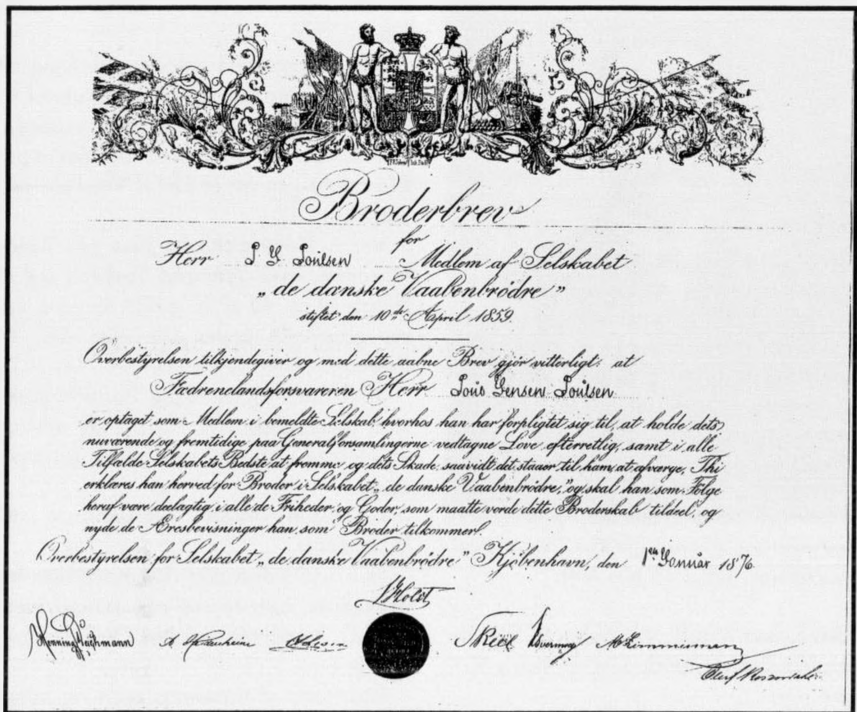 Broderbrev
for
Herr P. J. Poulsen Medlem af Selskabet
„de danske Vaabenbrödre”
stiftet den 10de April 1859.
Overbestyrelsen tilkjendegiver og med dette aabne Brev gjör vitterligt: at
Fædrenelandsforsvareren Herr Jensen Poulsen
er optaget som Medlem i bemeldte Selskab, hvorhos han har forpligtet sig til, at holde dets
nuværende og fremtidige paa Generalforsamlingerne vedtagne Love efterretlig, samt i alle
Tilfælde Selskabets Bedste at fremme og dets Skade, saavidt det staaer til ham, at afværge, Thi
erklæres han herved for Broder i Selskabet „de danske Vaabenbrödre,” og skal han som Fölge
heraf være deelagtig i alle de Friheder og Goder, som maatte vorde dette Broderskab tildeel, og
nyde de Æresbevisninger han som Broder tilkommer.
Overbestyrelsen for Selskabet „de danske Vaabenbrödre” Kjöbenhavn, den 1ste Januar 1876
Holst
Henning